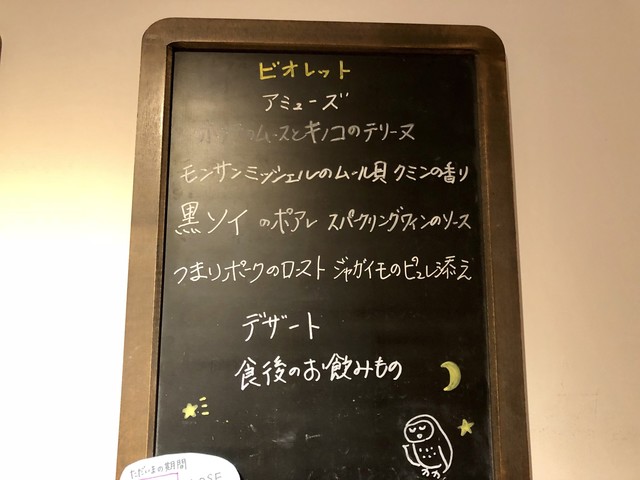 ビオレット
アミューズ
ホタテのムースとキノコのテリーヌ
モンサンミッシェルのムール貝 クミンの香り
黒ソイ のポアレ スパークリングワインのソース
つまりポークのロースト ジャガイモのピュレ添え
デザート
食後のお飲みもの
ただいまの期間